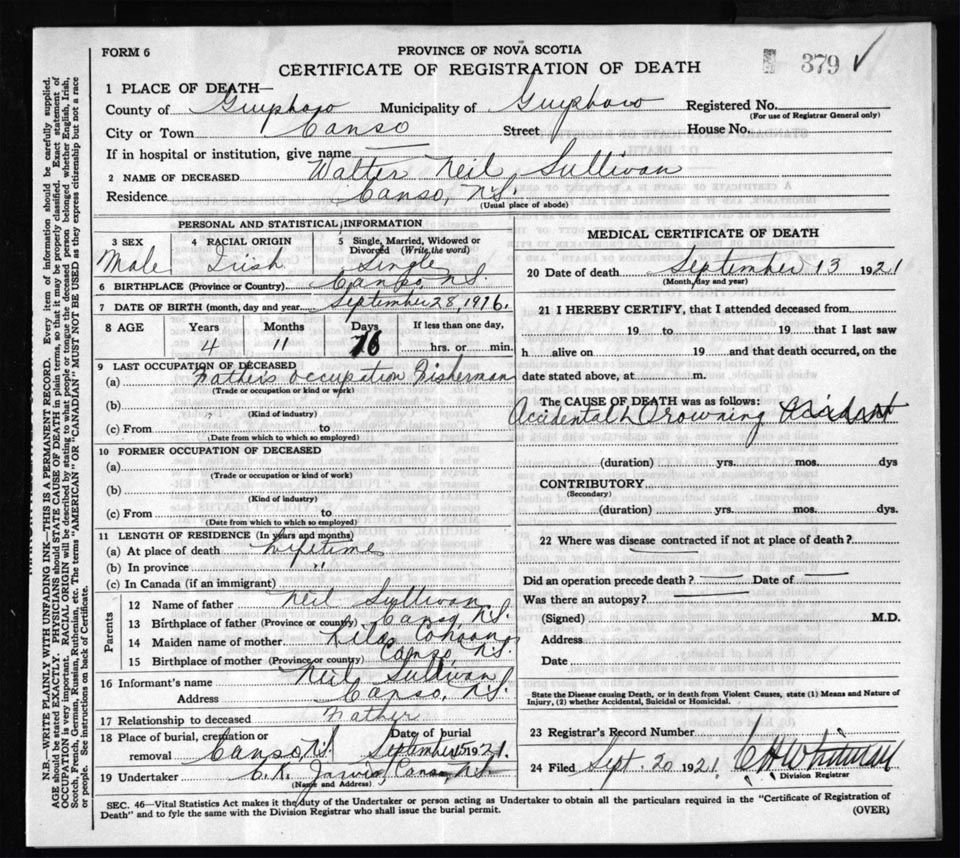 FORM 6
PROVINCE OF NOVA SCOTIA
CERTIFICATE OF REGISTRATION OF DEATH
379 ✓
1 PLACE OF DEATH—
County of Guysboro Municipality of Guysboro Registered No.
(For use of Registrar General only)
City or Town Canso Street House No.
If in hospital or institution, give name
2 NAME OF DECEASED Walter Neil Sullivan
Residence Canso, N.S.
(Usual place of abode)
PERSONAL AND STATISTICAL INFORMATION
3 SEX 4 RACIAL ORIGIN 5 Single, Married, Widowed or Divorced (Write the word)
Male Irish Single
6 BIRTHPLACE (Province or Country) Canso, N.S.
7 DATE OF BIRTH (month, day and year) September 28, 1916.
8 AGE Years Months Days If less than one day,
4 11 16 hrs. or min.
9 LAST OCCUPATION OF DECEASED
(a) Father's Occupation Fisherman
(Trade or occupation or kind or work)
(b)
(Kind of industry)
(c) From to
(Date from which to which so employed)
10 FORMER OCCUPATION OF DECEASED
(a)
(Trade or occupation or kind of work)
(b)
(Kind of industry)
(c) From to
(Date from which to which so employed)
11 LENGTH OF RESIDENCE (In years and months)
(a) At place of death Lifetime
(b) In province "
(c) In Canada (if an immigrant)
Parents
12 Name of father Neil Sullivan
13 Birthplace of father (Province or country) Canso, N.S.
14 Maiden name of mother Lilda Cohoon
15 Birthplace of mother (Province or country) Canso N.S.
16 Informant's name Neil Sullivan
Address Canso, N.S.
17 Relationship to deceased Father
18 Place of burial, cremation or removal Canso, N.S. Date of burial September 15 1921.
19 Undertaker C. R. Jarvis, Canso N.S.
(Name and Address)
MEDICAL CERTIFICATE OF DEATH
20 Date of death September 13 1921
(Month, day and year)
21 I HEREBY CERTIFY, that I attended deceased from
19 to 19 that I last saw
h alive on 19 and that death occurred, on the
date stated above, at m.
The CAUSE OF DEATH was as follows:
Accidental Drowning Accident
(duration) yrs. mos. dys
CONTRIBUTORY
(Secondary)
(duration) yrs. mos. dys.
22 Where was disease contracted if not at place of death?
Did an operation precede death? Date of
Was there an autopsy?
(Signed) M.D.
Address
Date
State the Disease causing Death, or in death from Violent Causes, state (1) Means and Nature of
Injury, (2) whether Accidental, Suicidal or Homicidal.
23 Registrar's Record Number
24 Filed Sept. 20 1921 C H Whitman
Division Registrar
SEC. 46—Vital Statistics Act makes it the duty of the Undertaker or person acting as Undertaker to obtain all the particulars required in the "Certificate of Registration of
Death" and to fyle the same with the Division Registrar who shall issue the burial permit. (OVER)
N.B.—WRITE PLAINLY, WITH UNFADING INK—THIS IS A PERMANENT RECORD. Every item of information should be carefully supplied.
AGE should be stated EXACTLY. PHYSICIANS should STATE CAUSE OF DEATH in plain terms, so that it may be properly classified. Exact statement of
OCCUPATION is very important. RACIAL ORIGIN will be described by stating to what people or tongue the deceased person belonged whether English, Irish,
Scotch, French, German, Russian, Ruthenian, etc. The terms "AMERICAN" OR "CANADIAN" MUST NOT BE USED as they express citizenship but not a race
or people. See instructions on back of Certificate.